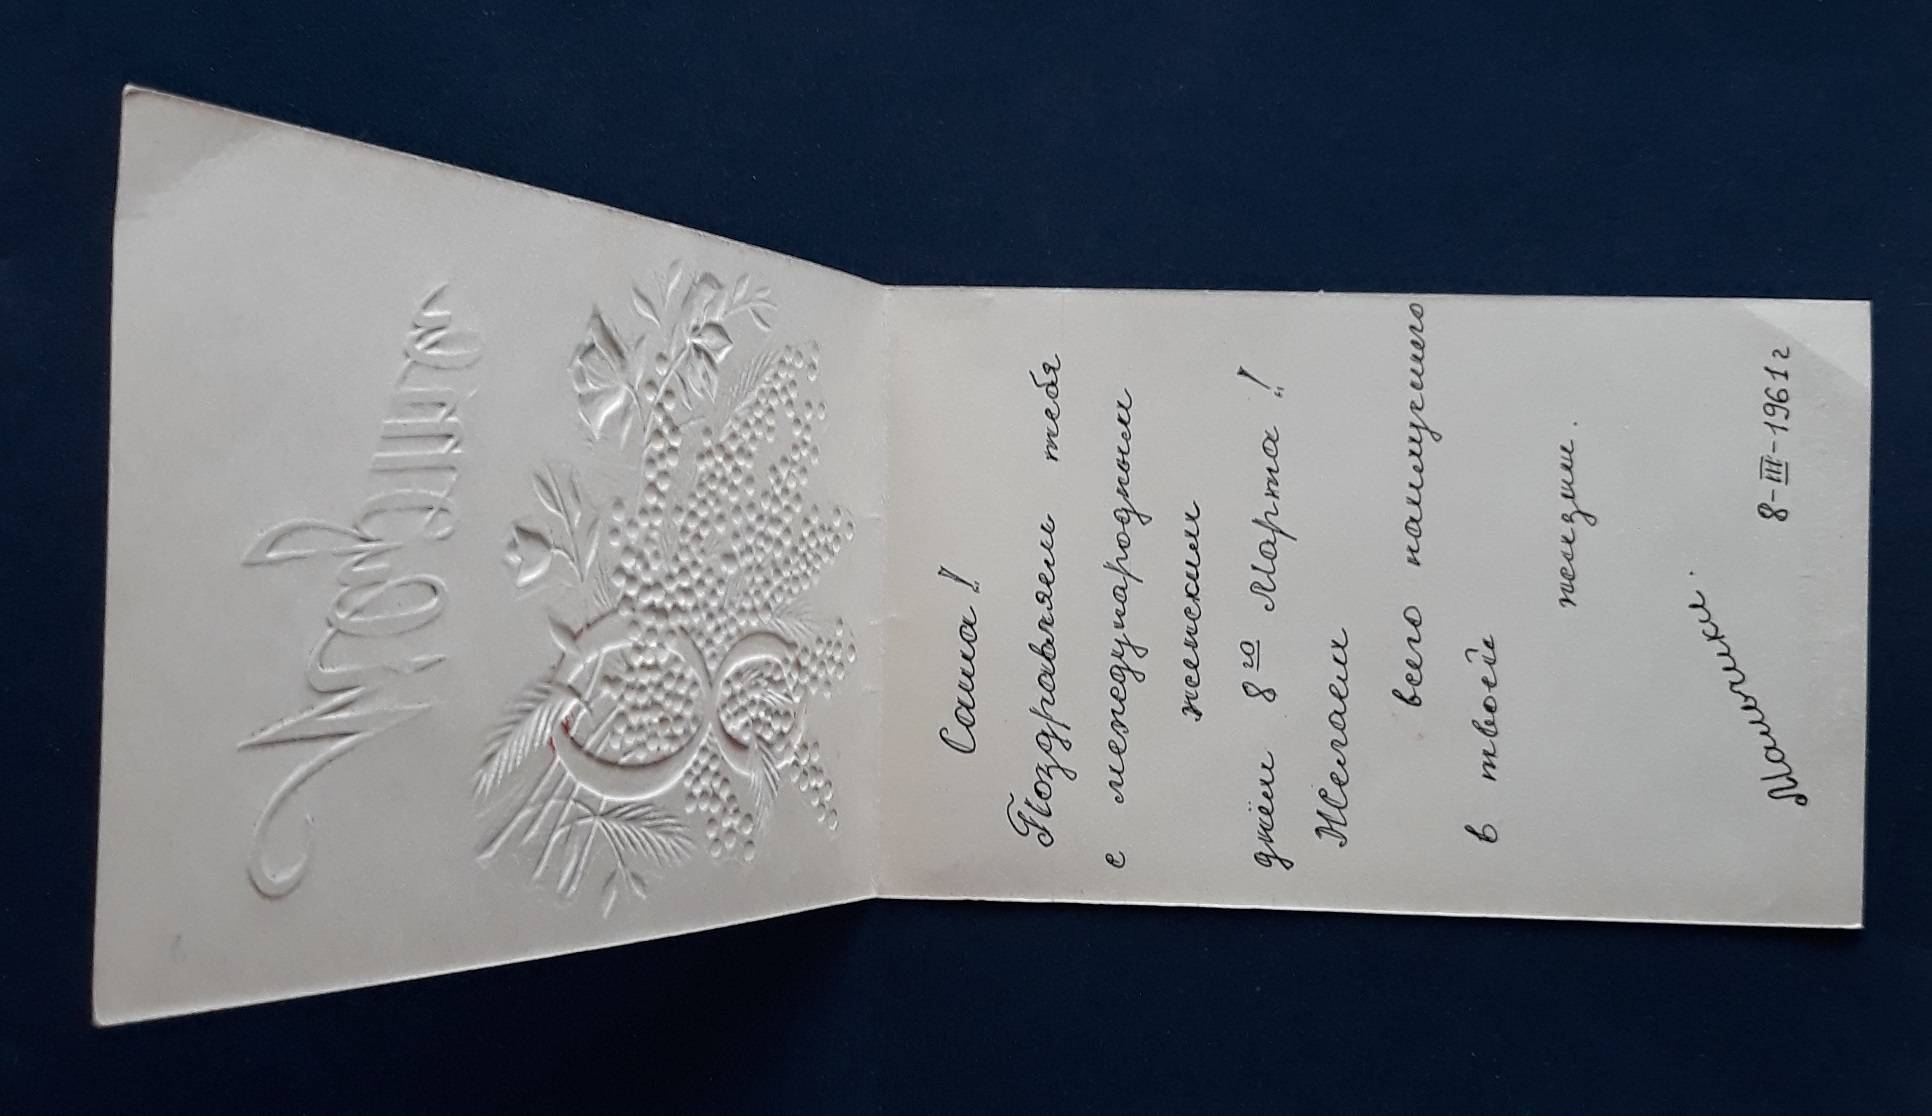 Саша!
Поздравляем тебя
с международным
женским
днём 8го Марта!
Желаем
всего наилучшего
в твоей
жизни.
Мальчики.
8-III-1961г